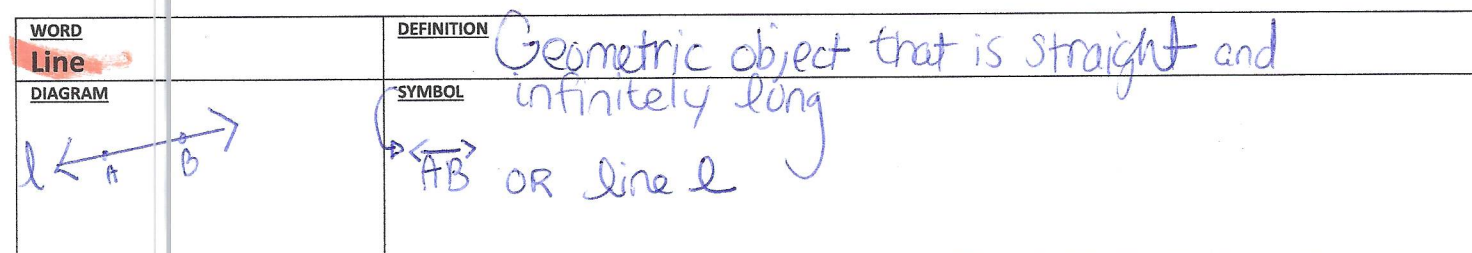 WORD
Line
DEFINITION Geometric object that is straight and
infinitely long
DIAGRAM
l A B
SYMBOL
AB OR line l